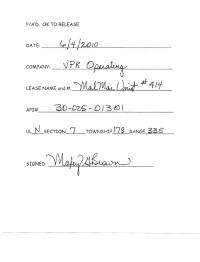 P/A'D. OK TO RELEASE
DATE: 6/4/2010
COMPANY: VPR Operating
LEASE NAME and #: MalMar Unit #414
API#: 30-025-01301
UL N SECTION 7 TOWNSHIP 17S RANGE 33E
SIGNED: Mary G Brown